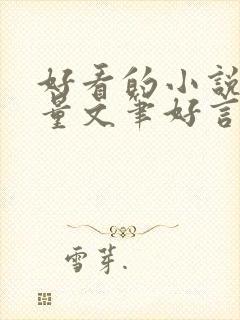 好看的小說
量文筆好言
雪芽.